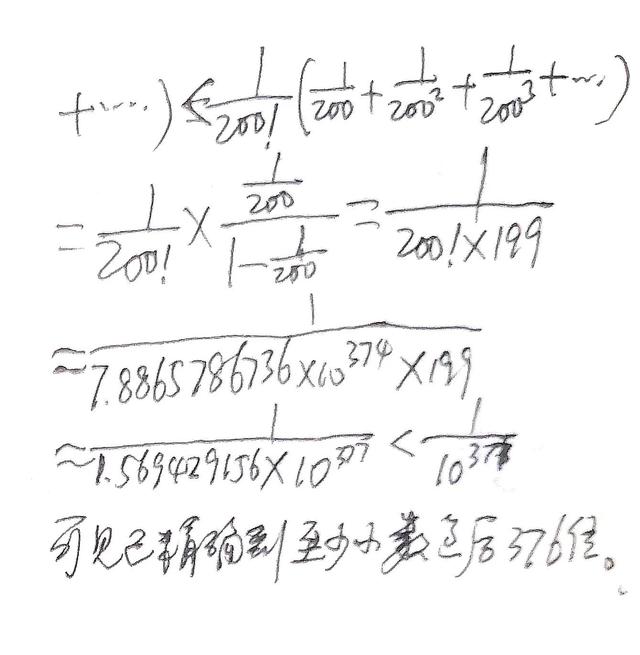 +……) < 1/200! (1/200 + 1/200² + 1/200³ + …)
= 1/200! × (1/200)/(1 - 1/200) = 1/(200! × 199)
≈ 1/(7.8865786736 × 10^374 × 199)
≈ 1/(1.569429156 × 10^377) < 1/10^377
可见已精确到至少小数点后376位。